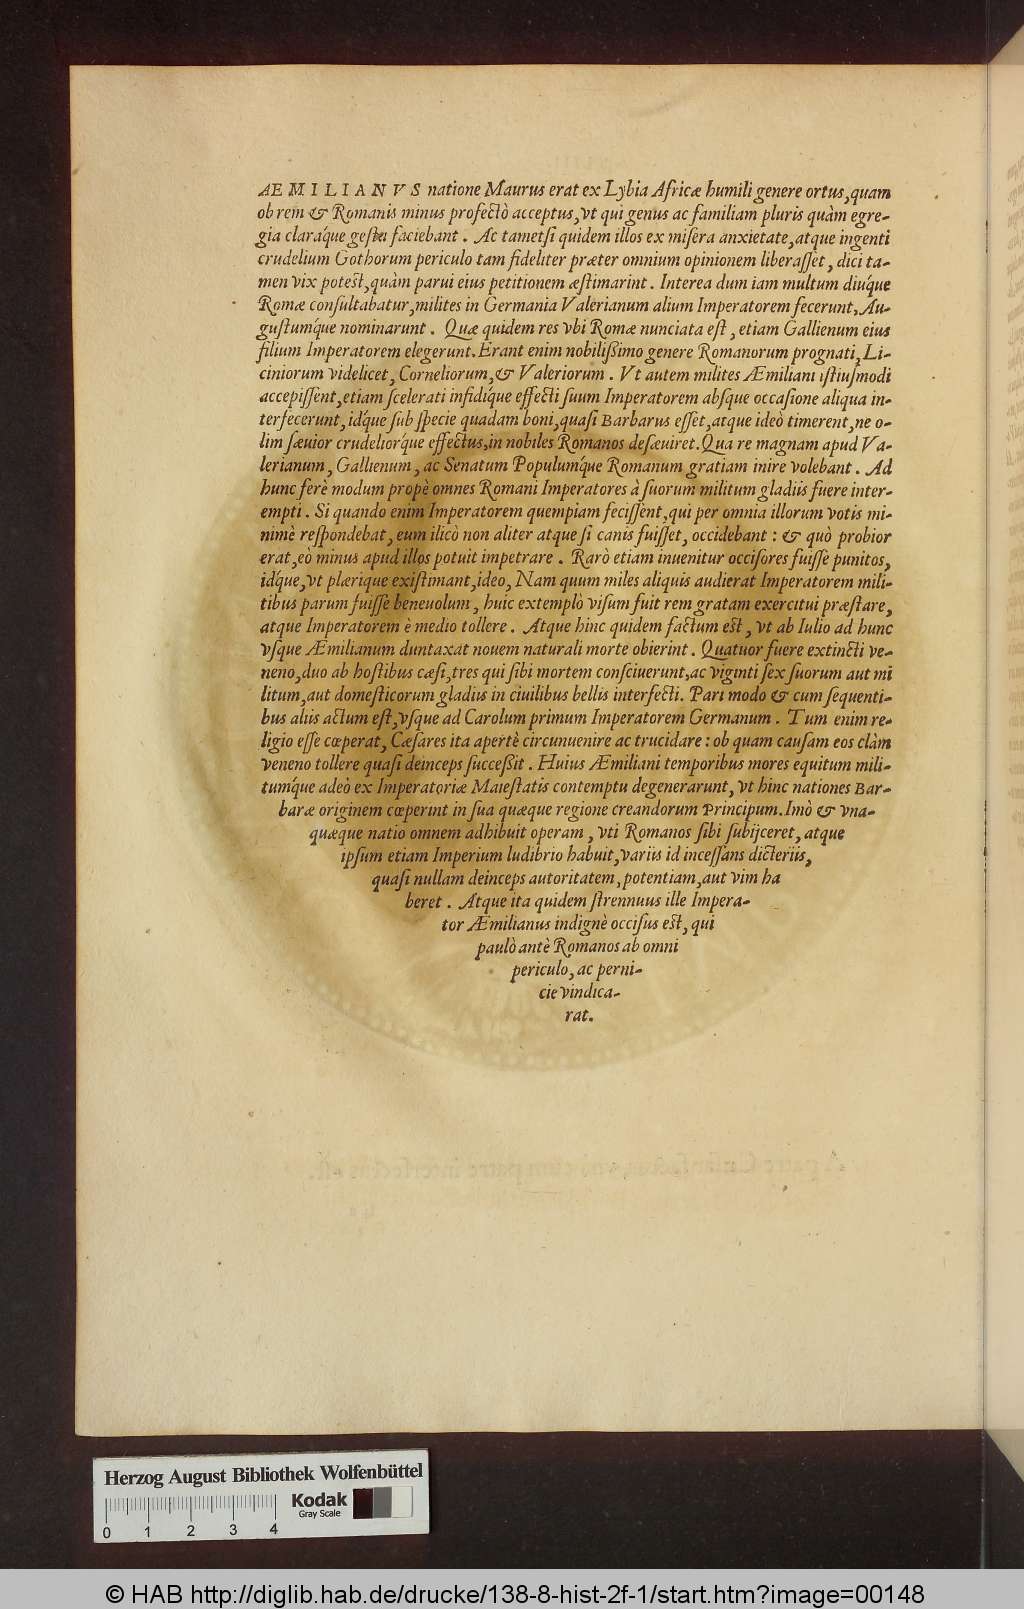 AEMILIANVS natione Maurus erat ex Lybia Africæ humili genere ortus, quam
ob rem & Romanis minus profectò acceptus, vt qui genus ac familiam pluris quàm egre-
gia claráque gesta faciebant. Ac tametsi quidem illos ex misera anxietate, atque ingenti
crudelium Gothorum periculo tam fideliter præter omnium opinionem liberasset, dici ta-
men vix potest, quàm parui eius petitionem æstimarint. Interea dum iam multum diúque
Romæ consultabatur, milites in Germania Valerianum alium Imperatorem fecerunt, Au-
gustumq́ue nominarunt. Quæ quidem res vbi Romæ nunciata est, etiam Gallienum eius
filium Imperatorem elegerunt. Erant enim nobilissimo genere Romanorum prognati, Li-
ciniorum videlicet, Corneliorum, & Valeriorum. Vt autem milites Æmiliani istiusmodi
accepissent, etiam scelerati infidiq́ue effecti suum Imperatorem absque occasione aliqua in-
terfecerunt, idq́ue sub specie quadam boni, quasi Barbarus esset, atque ideò timerent, ne o-
lim sæuior crudeliorq́ue effectus, in nobiles Romanos desæuiret. Qua re magnam apud Va-
lerianum, Gallienum, ac Senatum Populumq́ue Romanum gratiam inire volebant. Ad
hunc ferè modum propè omnes Romani Imperatores à suorum militum gladiis fuere inter-
empti. Si quando enim Imperatorem quempiam fecissent, qui per omnia illorum votis mi-
nimè respondebat, eum ilicò non aliter atque si canis fuisset, occidebant: & quò probior
erat, eò minus apud illos potuit impetrare. Rarò etiam inuenitur occisores fuisse punitos,
idq́ue, vt plærique existimant, ideo, Nam quum miles aliquis audierat Imperatorem mili-
tibus parum fuisse beneuolum, huic extemplò visum fuit rem gratam exercitui præstare,
atque Imperatorem è medio tollere. Atque hinc quidem factum est, vt ab Iulio ad hunc
vsque Æmilianum duntaxat nouem naturali morte obierint. Quatuor fuere extincti ve-
neno, duo ab hostibus cæsi, tres qui sibi mortem consciuerunt, ac viginti sex suorum aut mi
litum, aut domesticorum gladiis in ciuilibus bellis interfecti. Pari modo & cum sequenti-
bus aliis actum est, vsque ad Carolum primum Imperatorem Germanum. Tum enim re-
ligio esse cœperat, Cæsares ita apertè circunuenire ac trucidare: ob quam causam eos clàm
veneno tollere quasi deinceps successit. Huius Æmiliani temporibus mores equitum mili-
tumq́ue adeò ex Imperatoriæ Maiestatis contemptu degenerarunt, vt hinc nationes Bar-
baræ originem cœperint in sua quæque regione creandorum Principum. Imò & vna-
quæque natio omnem adhibuit operam, vti Romanos sibi subijceret, atque
ipsum etiam Imperium ludibrio habuit, variis id incessans dicteriis,
quasi nullam deinceps autoritatem, potentiam, aut vim ha
beret. Atque ita quidem strennuus ille Impera-
tor Æmilianus indignè occisus est, qui
paulò antè Romanos ab omni
periculo, ac perni-
cie vindica-
rat.
Herzog August Bibliothek Wolfenbüttel
Kodak
Gray Scale
0 1 2 3 4
© HAB http://diglib.hab.de/drucke/138-8-hist-2f-1/start.htm?image=00148